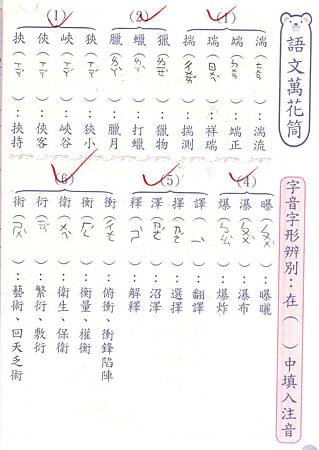 語文萬花筒
字音字形辨別：在（　）中填入注音
(1)
湍（ㄊㄨㄢ）：湍流
端（ㄉㄨㄢ）：端正
瑞（ㄖㄨㄟˋ）：祥瑞
揣（ㄔㄨㄞˇ）：揣測
(2)
獵（ㄌㄧㄝˋ）：獵物
蠟（ㄌㄚˋ）：打蠟
臘（ㄌㄚˋ）：臘月
狹（ㄒㄧㄚˊ）：狹小
峽（ㄒㄧㄚˊ）：峽谷
俠（ㄒㄧㄚˊ）：俠客
挾（ㄒㄧㄚˊ）：挾持
(4)
曝（ㄆㄨˋ）：曝曬
瀑（ㄆㄨˋ）：瀑布
爆（ㄅㄠˋ）：爆炸
(5)
譯（ㄧˋ）：翻譯
擇（ㄗㄜˊ）：選擇
澤（ㄗㄜˊ）：沼澤
釋（ㄕˋ）：解釋
(6)
衝（ㄔㄨㄥ）：俯衝、衝鋒陷陣
衡（ㄏㄥˊ）：衡量、權衡
衛（ㄨㄟˋ）：衛生、保衛
衍（ㄧㄢˇ）：繁衍、敷衍
術（ㄕㄨˋ）：藝術、回天乏術